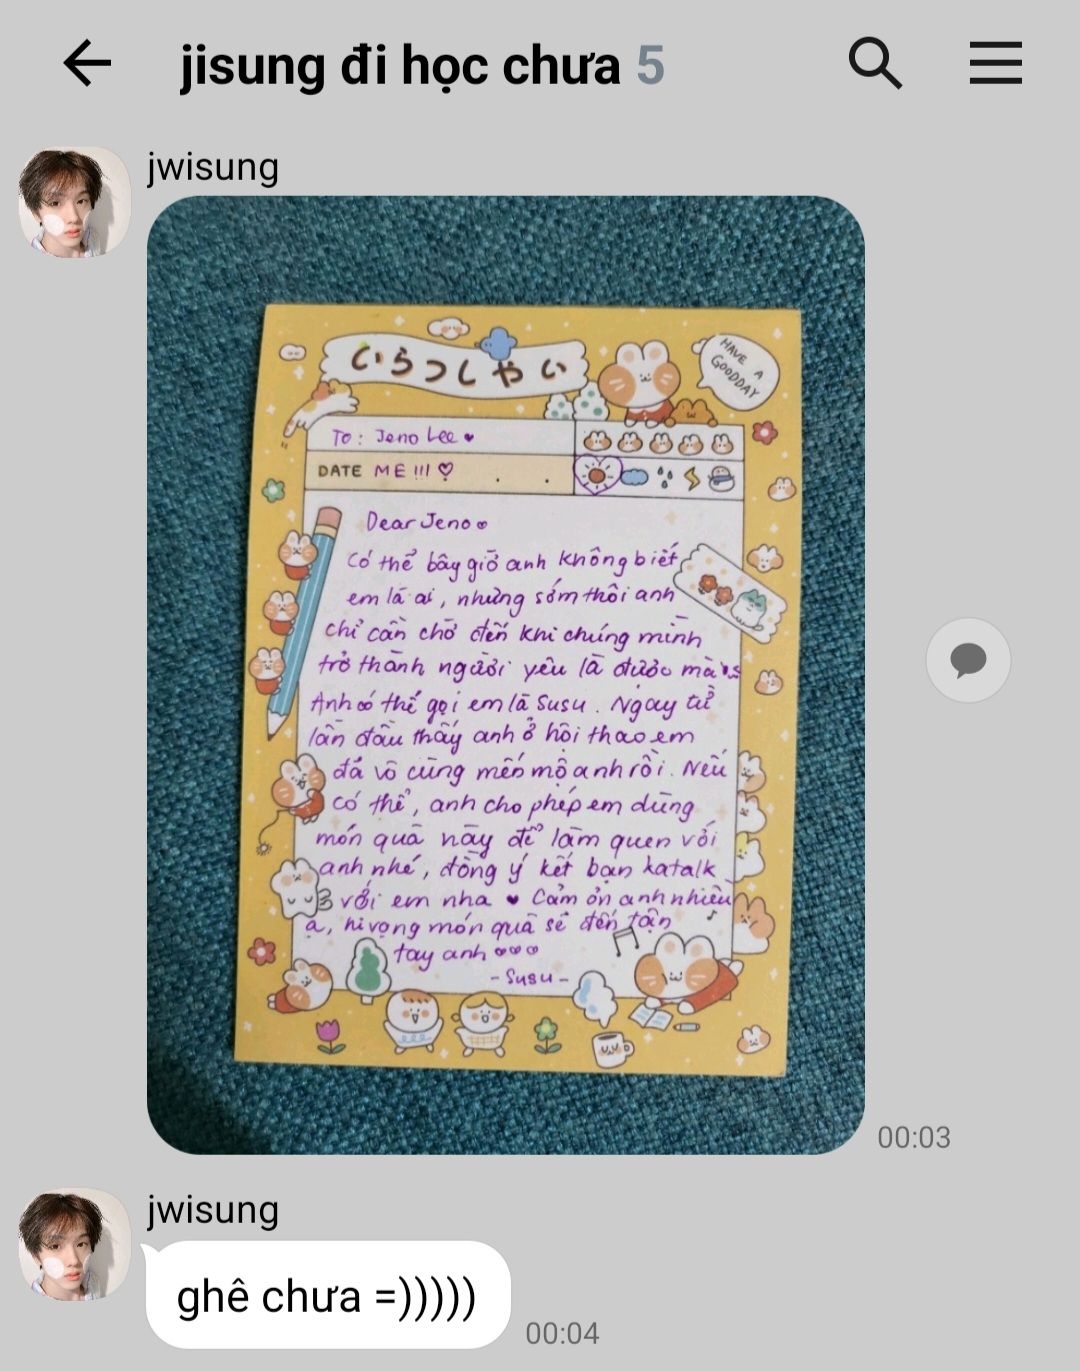 jisung đi học chưa 5
jwisung
いらっしゃい
HAVE A
GOODDAY
To: Jeno Lee ♥
DATE ME!!! ♡
Dear Jeno
Có thể bây giờ anh không biết
em là ai, nhưng sớm thôi anh
chỉ cần chờ đến khi chúng mình
trở thành người yêu là được mà
Anh có thể gọi em là Susu. Ngay từ
lần đầu thấy anh ở hội thao em
đã vô cùng mến mộ anh rồi. Nếu
có thể, anh cho phép em dùng
món quà này để làm quen với
anh nhé, đồng ý kết bạn katalk
với em nha ♥ Cảm ơn anh nhiều
ạ, hi vọng món quà sẽ đến tận
tay anh ♡♡♡
- Susu -
00:03
jwisung
ghê chưa =)))))
00:04